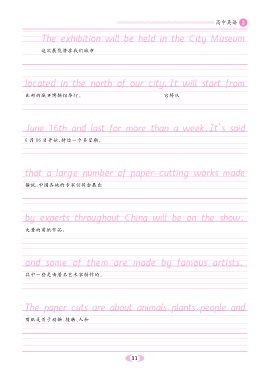 高中英语 2
The exhibition will be held in the City Museum
这次展览将在我们城市
located in the north of our city. It will start from
北部的城市博物馆举行。 它将从
June 16th and last for more than a week. It's said
6 月 16 日开始,持续一个多星期。
that a large number of paper-cutting works made
据说,中国各地的专家们将会展出
by experts throughout China will be on the show,
大量的剪纸作品,
and some of them are made by famous artists.
其中一些是由著名艺术家创作的。
The paper cuts are about animals, plants, people and
剪纸是关于动物、植物、人和
31